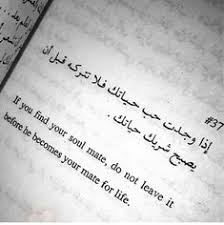 #37
إذا وجدت حب حياتك فلا تتركه قبل أن
يصبح شريك حياتك .
If you find your soul mate, do not leave it
before he becomes your mate for life.